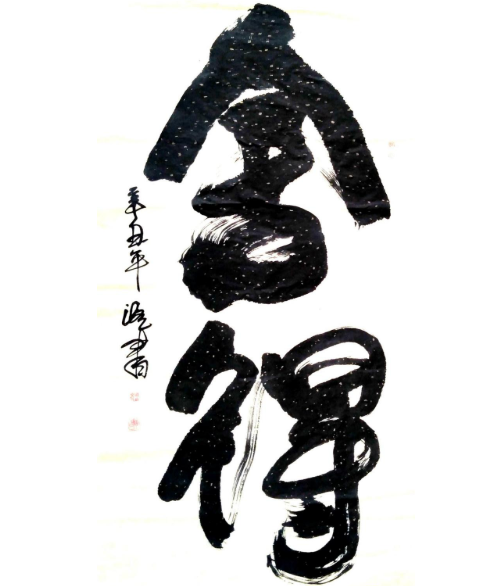 舍得
辛丑年 书